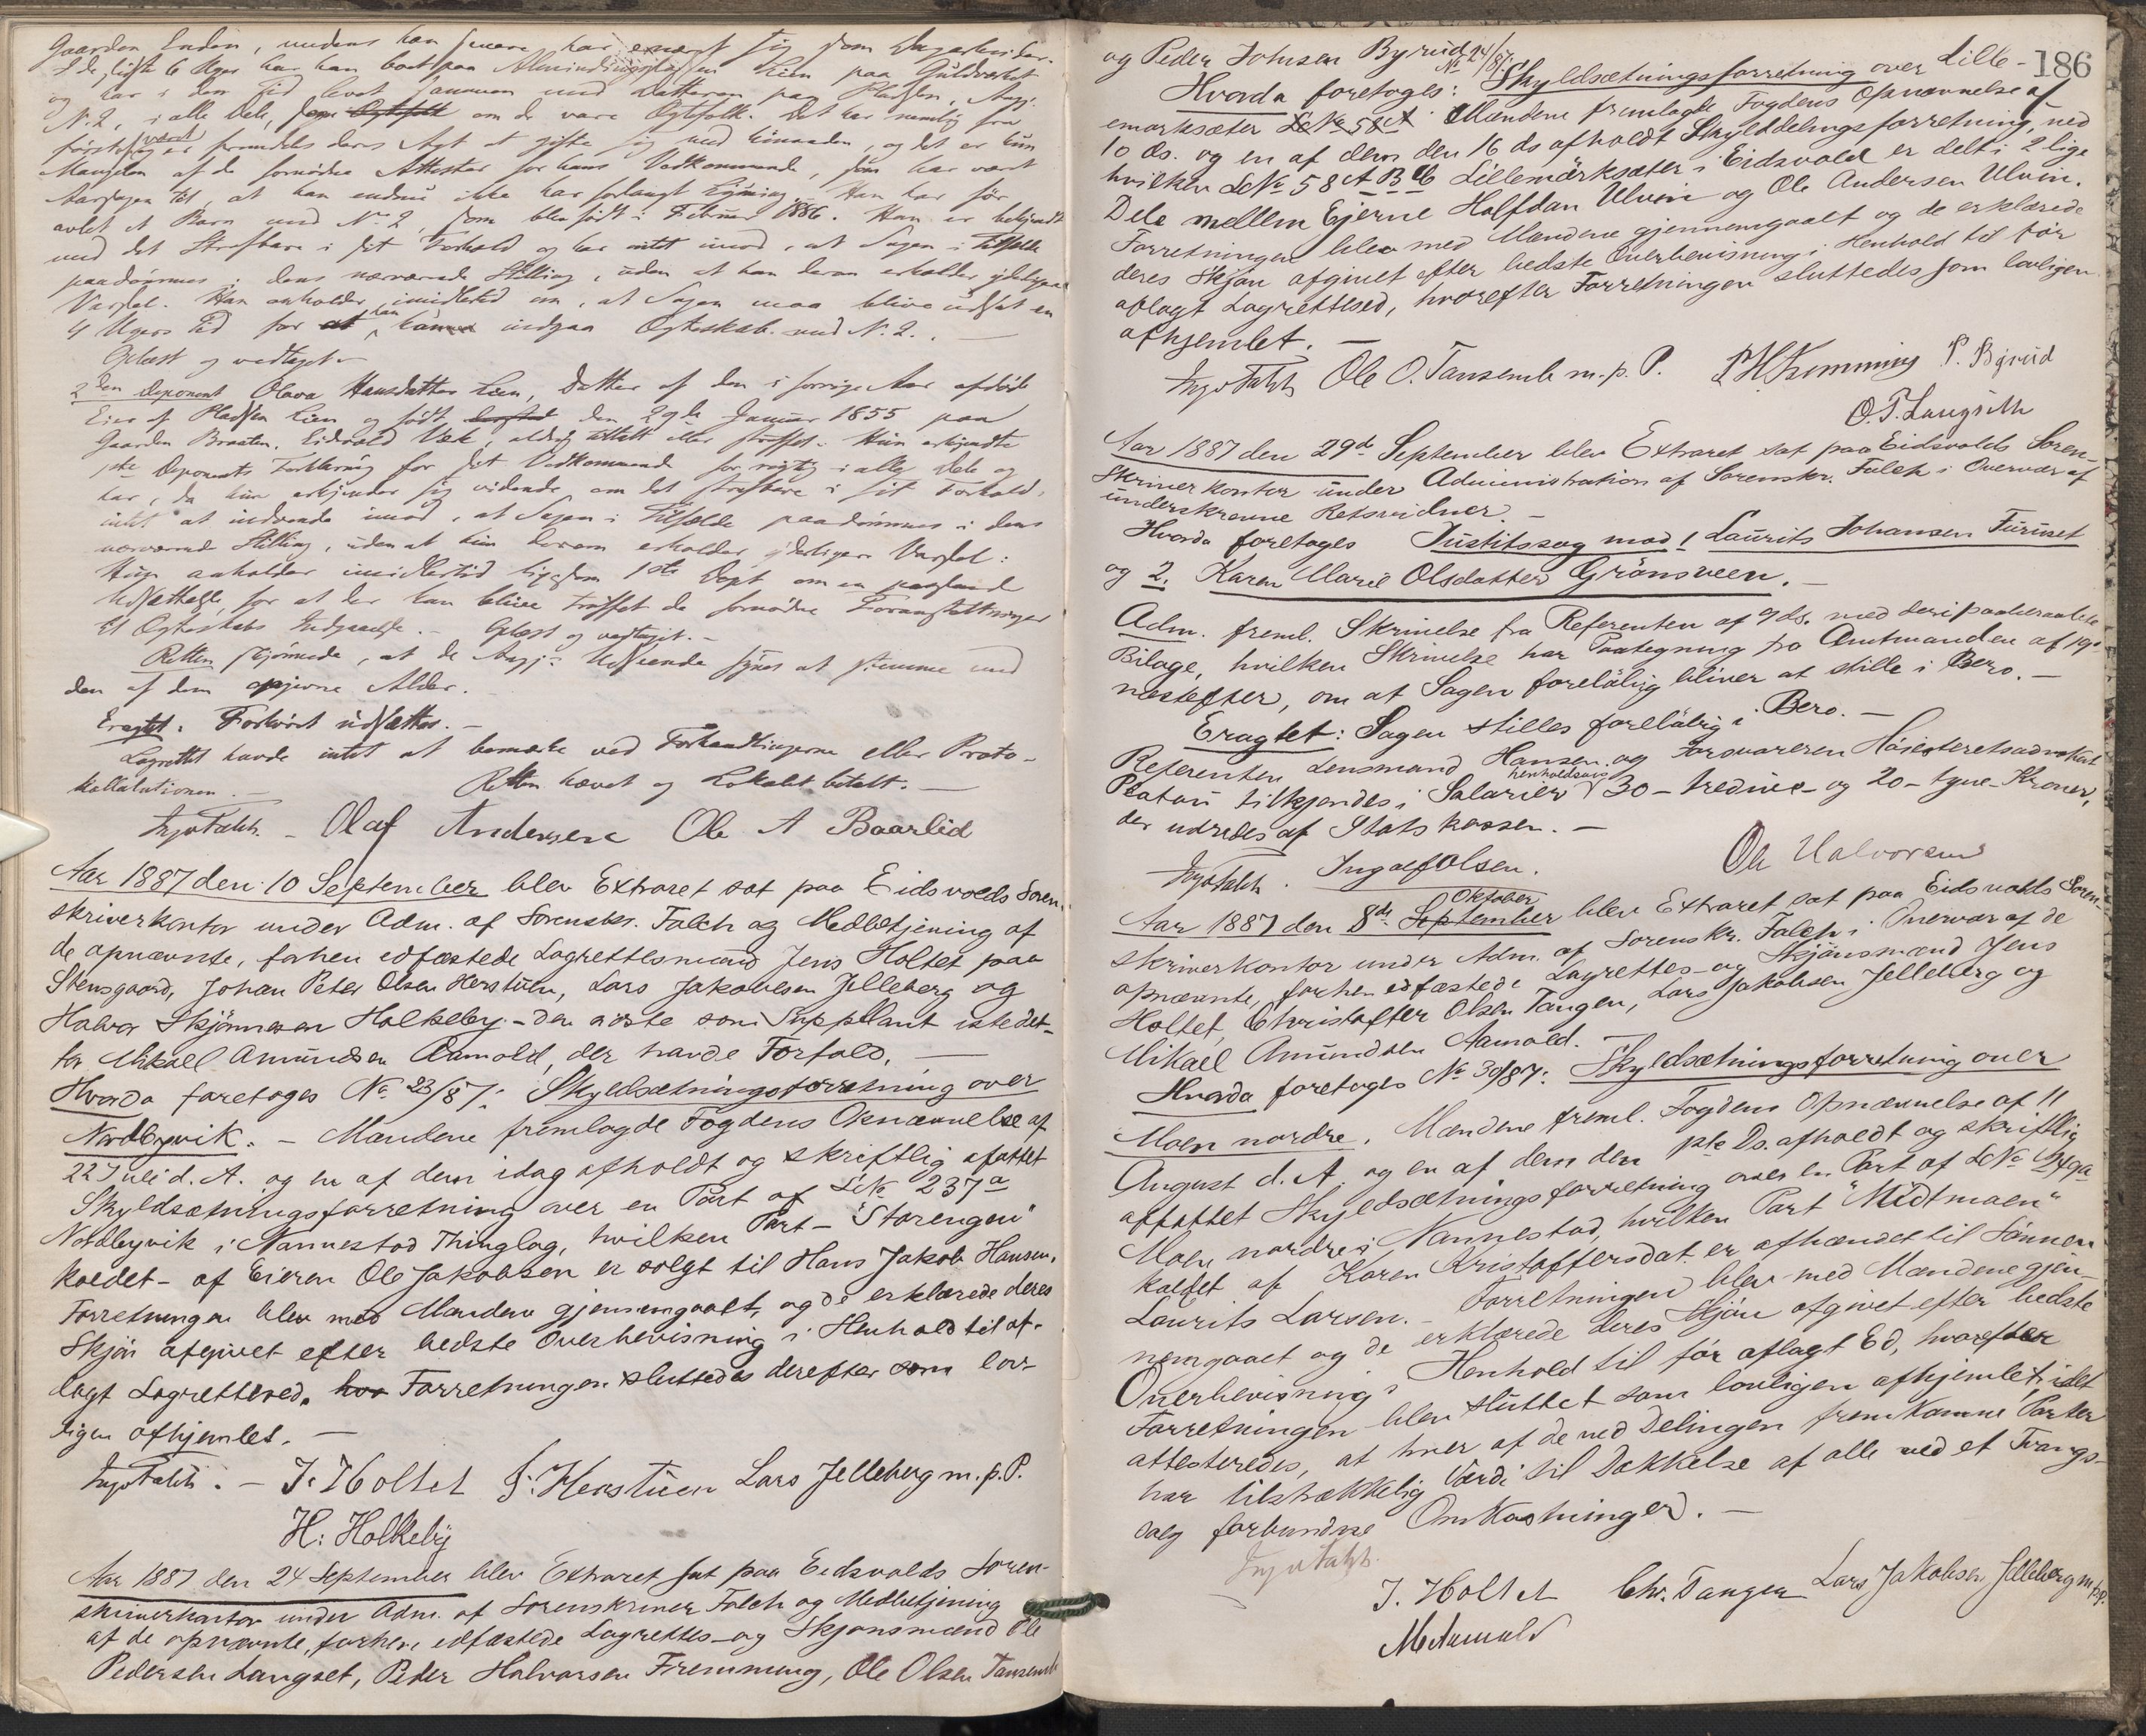 Gaarden Enden, medens han senere har ernæret sig som Dagarbeider.
I de sidste 6 Uger har han boet paa Almindingspladsen Lien paa Guldværket
og har i den Tid levet sammen med Datteren paa Pladsen, Ang.
N. 2, i alle Dele, som om de vare Ægtefolk. Det har nemlig fra
først af været fremdeles deres Agt at gifte sig med hinanden, og det er kun
Mangelen af de fornødne Attester for hans Vedkommende, som har været
Aarsagen til, at han endnu ikke har forlangt Lysning. Han har før
avlet et Barn med N. 2, som blev født i Februar 1886. Han er bekjendt
med det Strafbare i sit Forhold og har intet imod, at Sagen i Tilfælde
paadømmes i dens nærværende Stilling, uden at han derom erholder yderligere
Varsel. Han anholder imidlertid om, at Sagen maa blive udsat en
4 Ugers Tid for at han kan indgaa Ægteskab med N. 2. —
Oplæst og vedtaget.
2den Deponent Olava Hansdatter Lien, Datter af den i forrige Aar afdøde
Eier af Pladsen Lien og født den 29de Januar 1855 paa
Gaarden Braaten, Eidsvold, aldrig tiltalt eller straffet. Hun erkjendte
1ste Deponents Forklaring for sit Vedkommende for rigtig i alle Dele og
har, da hun erkjender sig vidende om det strafbare i sit Forhold,
intet at indvende imod, at Sagen i Tilfælde paadømmes i dens
nærværende Stilling, uden at hun derom erholder yderligere Varsel.
Hun anholder imidlertid ligesom 1ste Dept. om en
Udsættelse, for at der kan blive truffet de fornødne Foranstaltninger
til Ægteskabs Indgaaelse. — Oplæst og vedtaget. —
Retten skjønnede, at de Ang.s Udseende synes at stemme med
den af dem opgivne Alder.
Eragtet: Forhøret udsættes. —
Lagrettet havde intet at bemærke ved Forhandlingerne eller Proto-
kollationen. — Retten hævet og Lokalet betalt. —
Ingv Falch. — Olaf Andersen Ole A Baarlid
Aar 1887 den 10 September blev Extraret sat paa Eidsvolds Soren-
skriverkontor under Adm. af Sorenskr. Falch og Medbetjening af
de opnævnte, forhen edfæstede Lagrettesmænd Jens Holtet paa
Stensgaard, Johan Peter Olsen Herstuen, Lars Jakobsen Jelleberg og
Halvor Skjønnesen Holkeby – den sidste som Suppleant istedet-
for Mikael Amundsen Aamold, der havde Forfald. —
Hvorda foretages No 23/87: Skyldsætningsforretning over
Nordbyvik. – Mændene fremlagde Fogdens Opnævnelse af
22 Juli d. A. og en af dem idag afholdt og skriftlig afattet
Skyldsætningsforretning over en Part af LNo 237a
Nordbyvik i Nannestad Thinglag, hvilken Part – "Storengen"
kaldet – af Eieren Ole Jakobsen er solgt til Hans Jakob Hansen.
Forretningen blev med Mændene gjennemgaaet, og de erklærede deres
Skjøn afgivet efter bedste Overbevisning i Henhold til af-
lagt Lagretteed. hvor Forretningen sluttedes derefter som lov-
ligen afhjemlet. —
Ingv Falch. — J. Holtet J. Herstuen Lars Jelleberg m. p. P.
H: Holkeby
Aar 1887 den 24 September blev Extraret sat paa Eidsvolds Soren-
skriverkontor under Adm. af Sorenskriver Falch og Medbetjening
af de opnævnte, forhen edfæstede Lagrettes- og Skjønsmænd Ole
Pedersen Langset, Peder Halvorsen Fremming, Ole Olsen Tansemb
186
og Peder Johnsen Byrud
Hvorda foretoges: No 24/87 Skyldsætningsforretning over Lille-
emarksæter LNo 58A. Mændene fremlagde Fogdens Opnævnelse af
10 ds. og en af dem den 16 ds afholdt Skylddelingsforretning, ved
hvilken LNo 58 A B Lillemarksæter i Eidsvold er delt i 2 lige
Dele mellem Ejerne Halfdan Ulvin og Ole Andersen Ulvin.
Forretningen blev med Mændene gjennemgaaet og de erklærede
deres Skjøn afgivet efter bedste Overbevisning i Henhold til før
aflagt Lagretteed, hvorefter Forretningen sluttedes som lovligen
afhjemlet. —
Ingv Falch Ole O. Tansemb m. p. P. P H Fremming P. Byrud
O. P. Langseth
Aar 1887 den 29de September blev Extraret sat paa Eidsvolds Soren-
skriverkontor under Administration af Sorenskr. Falch i Overvær af
underskrevne Retsvidner. —
Hvorda foretoges Justitssag mod 1 Laurits Johansen Furuset
og 2. Karen Marie Olsdatter Grønsveen. —
Adm. freml. Skrivelse fra Referenten af 9 ds. med deri paaberaabte
Bilage, hvilken Skrivelse har Paategning fra Amtmanden af 19
næstefter, om at Sagen foreløbig bliver at stille i Bero. —
Eragtet: Sagen stilles foreløbig i Bero. —
Referenten Lensmand Hansen og Forsvareren Højesteretsadvokat
Platou tilkjendes i Salarier henholdsvis 30 – tredive – og 20 – tyve – Kroner,
der udredes af Statskassen. —
Ingv Falch. Ingolf Olsen. Ole Halvorsen
Aar 1887 den 8de September Oktober blev Extraret sat paa Eidsvolds Soren-
skriverkontor under Adm. af Sorenskr. Falch i Overvær af de
opnævnte, forhen edfæstede Lagrettes- og Skjønsmænd Jens
Holtet, Christoffer Olsen Tangen, Lars Jakobsen Jelleberg og
Mikael Amundsen Aamold. —
Hvorda foretoges No 30/87: Skyldsætningsforretning over
Moen nordre. Mændene freml. Fogdens Opnævnelse af 11
August d. A. og en af dem den 1ste Ds. afholdt og skriftlig
affattet Skyldsætningsforretning over en Part af LNo
Moen nordre i Nannestad, hvilken Part "Midtmoen"
kaldet af Karen Kristoffersdat. er afhændet til Sønnen
Laurits Larsen. – Forretningen blev med Mændene gjen-
nemgaaet og de erklærede deres Skjøn afgivet efter bedste
Overbevisning i Henhold til før aflagt Ed, hvorefter
Forretningen blev sluttet som lovligen afhjemlet, idet
attesteredes, at hver af de ved Delingen fremkomne Parter
har tilstrækkelig Værdi til Dækkelse af alle ved et Tvangs-
salg forbundne Omkostninger. —
Ingv Falch.
J. Holtet Chr. Tangen Lars Jakobsen Jelleberg m. p. p.
M Aamold